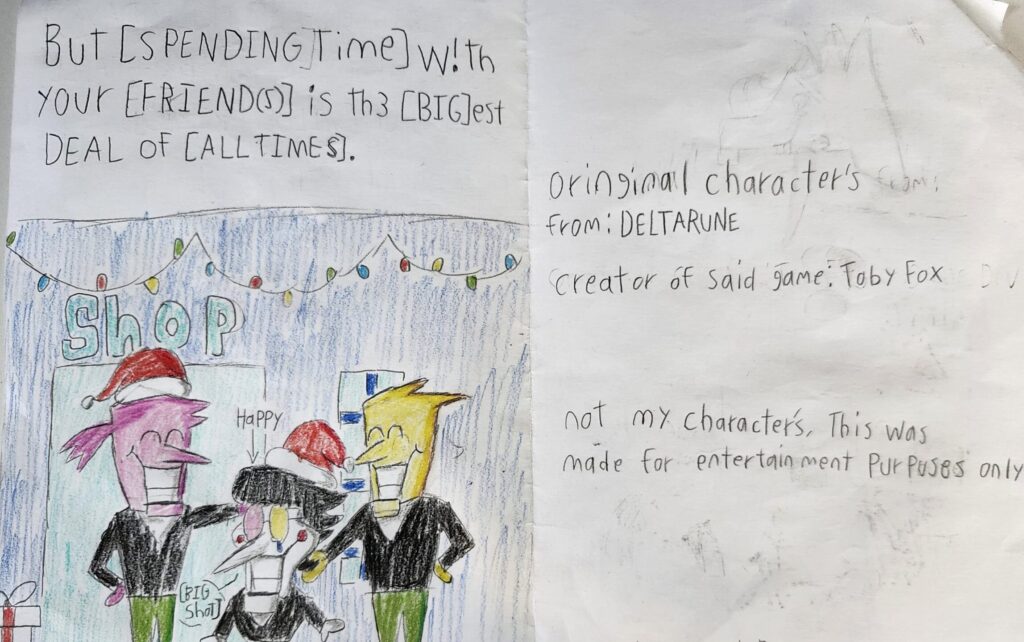 But [SPENDING]Time] W!th
YOUR [FRIEND(S)] is th3 [BIG]est
DEAL OF [ALL TIMES].
Shop
HaPPY
[BIG
Shot]
oringinal character's from:
from: DELTARUNE
creator of said game: Toby Fox
not my character's, This was
made for entertainment Purposes only